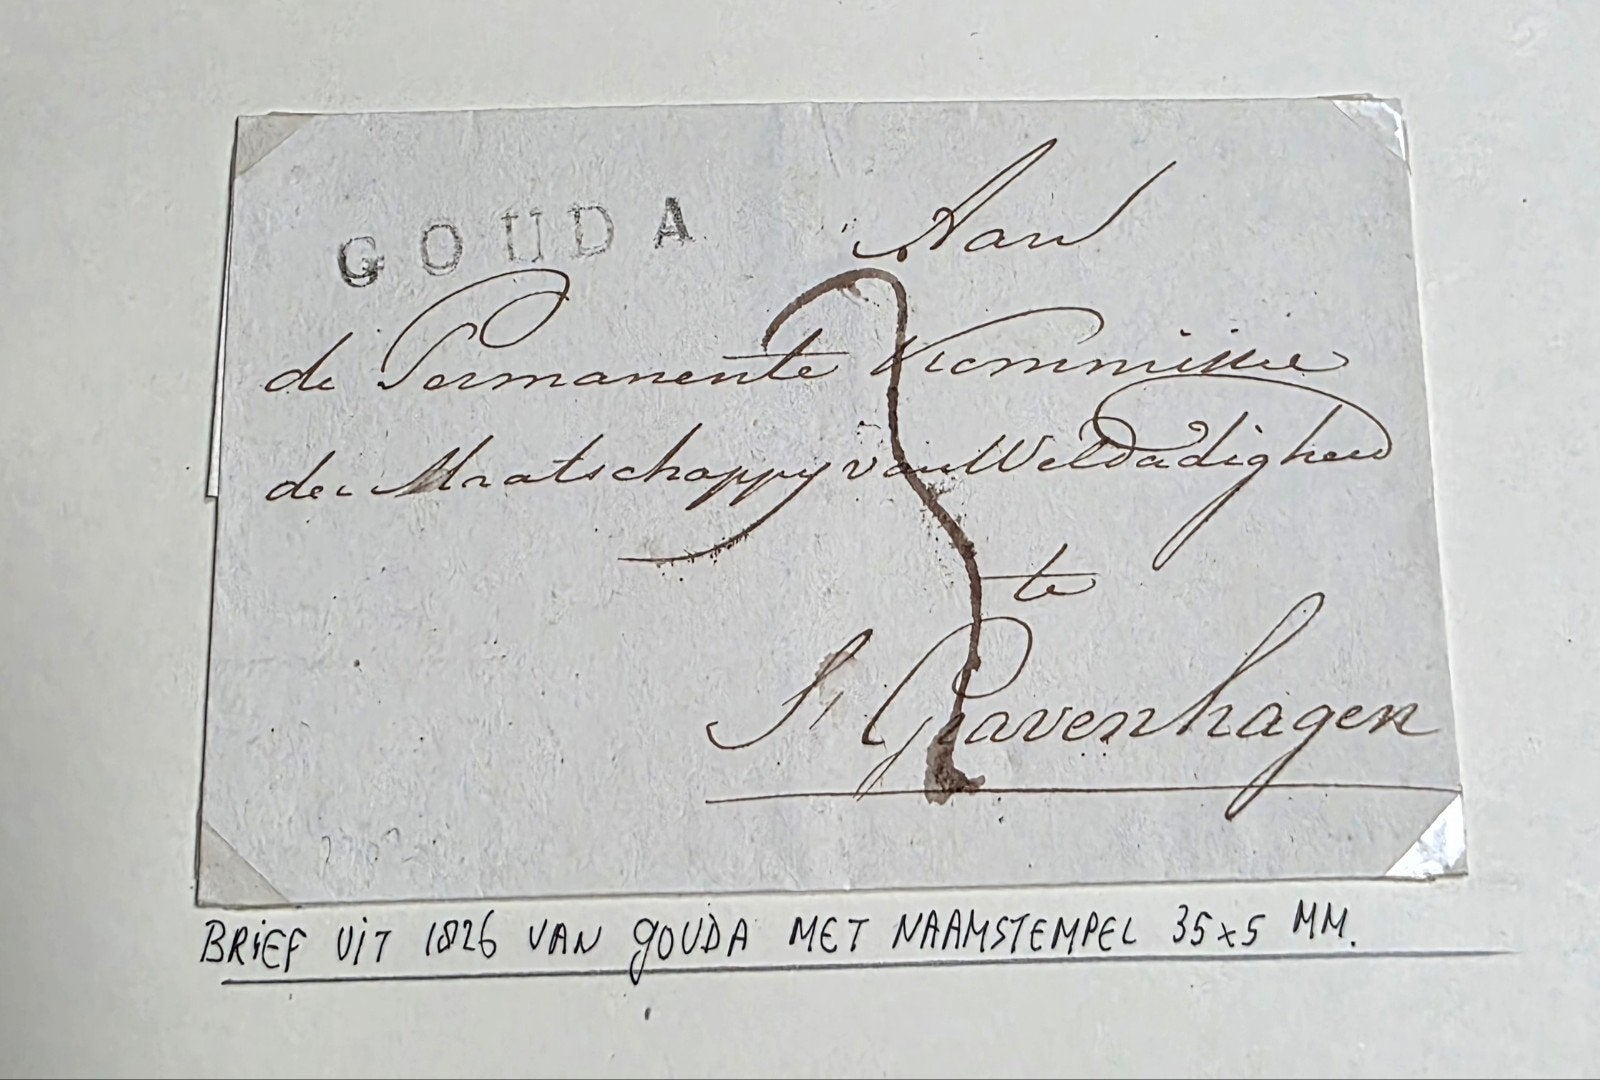 GOUDA
Aan
de Permanente Kommissie
der Maatschappy van Weldadigheid
te
S' Gravenhagen
BRIEF UIT 1826 VAN GOUDA MET NAAMSTEMPEL 35x5 MM.